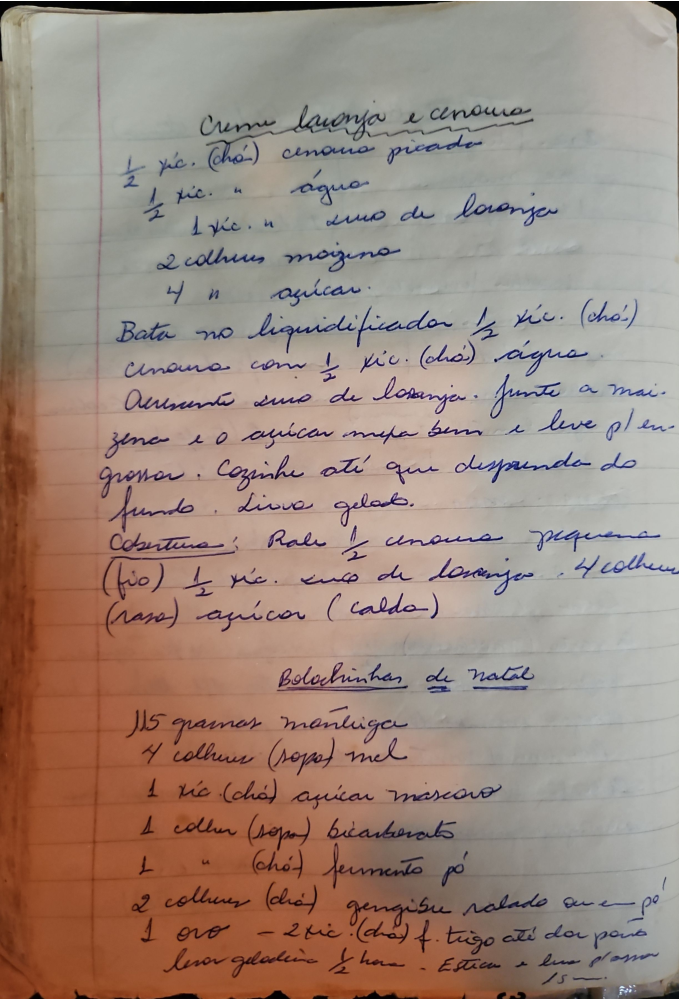 Creme laranja e cenoura
1/2 xíc. (chá) cenoura picada
1/2 xíc. " água
1 xíc. " suco de laranja
2 colheres maizena
4 " açúcar.
Bata no liquidificador 1/2 xíc. (chá)
cenoura com 1/2 xíc. (chá) água.
Acrescente suco de laranja. Junte a mai-
zena e o açúcar mexa bem e leve p/ en-
grossar. Cozinhe até que desprenda do
fundo. Sirva gelado.
Cobertura: Rale 1/2 cenoura pequena
(fio) 1/2 xíc. suco de laranja. 4 colheres
(rasa) açúcar (calda)
Bolachinhas de natal
115 gramas manteiga
4 colheres (sopa) mel
1 xíc. (chá) açúcar mascavo
1 colher (sopa) bicarbonato
1 " (chá) fermento pó
2 colheres (chá) gengibre ralado ou em pó
1 ovo - 2 xíc. (chá) f. trigo até dar ponto
levar geladeira 1/2 hora. Estica e leva p/ assar
15